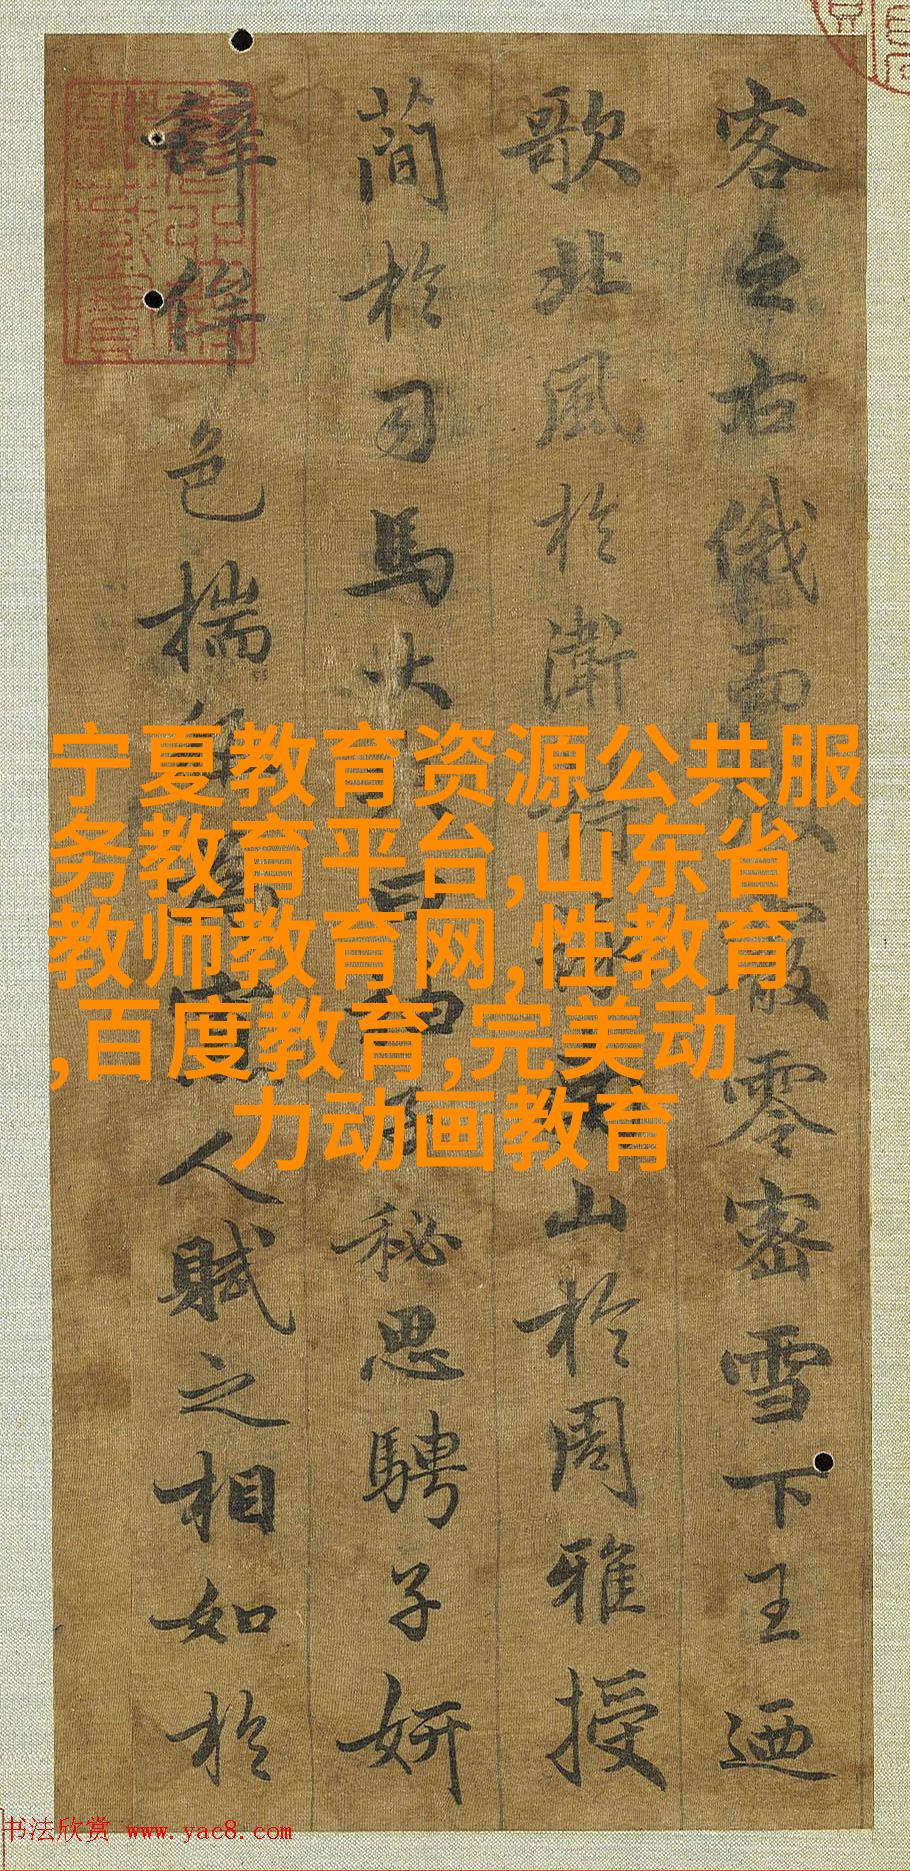 客之右俄而霰零密雪下王迺
歌北風於衛山於周雅授
簡於司馬大曰秘思騁子妍
辭侔色揣稱為人賦之相如於
宁夏教育资源公共服
务教育平台,山东省
教师教育网,性教育
,百度教育,完美动
力动画教育
书法欣赏 www.yac8.com